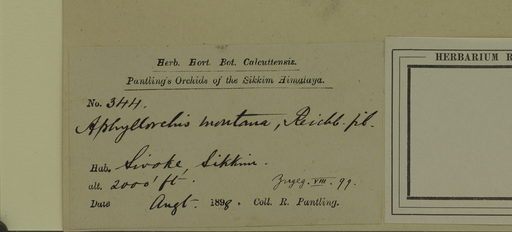 Herb. Hort. Bot. Calcuttensis.
Pantling's Orchids of the Sikkim Himalaya.
No. 344.
Aphyllorchis montana, Reichb. fil.
Hab. Sivoke, Sikkim.
alt. 2000' ft.
Zugeg. VIII. 99.
Date Augt. 1898. Coll. R. Pantling.
HERBARIUM R